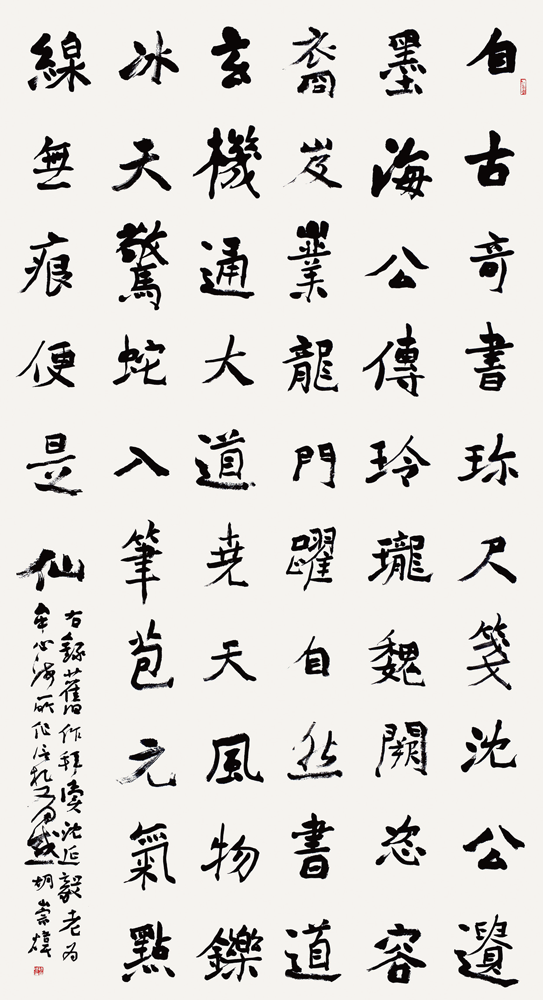 自古奇書珎尺箋沈公遺
墨海公傳玲瓏魏闕恣容
裔岌業龍門躍自然書道
玄機通大道堯天風物鑠
冰天驚蛇入筆苞元氣點
線無痕便是仙
右錄舊作拜讀沈延毅老為
牟心海所作信札又有感胡崇煒